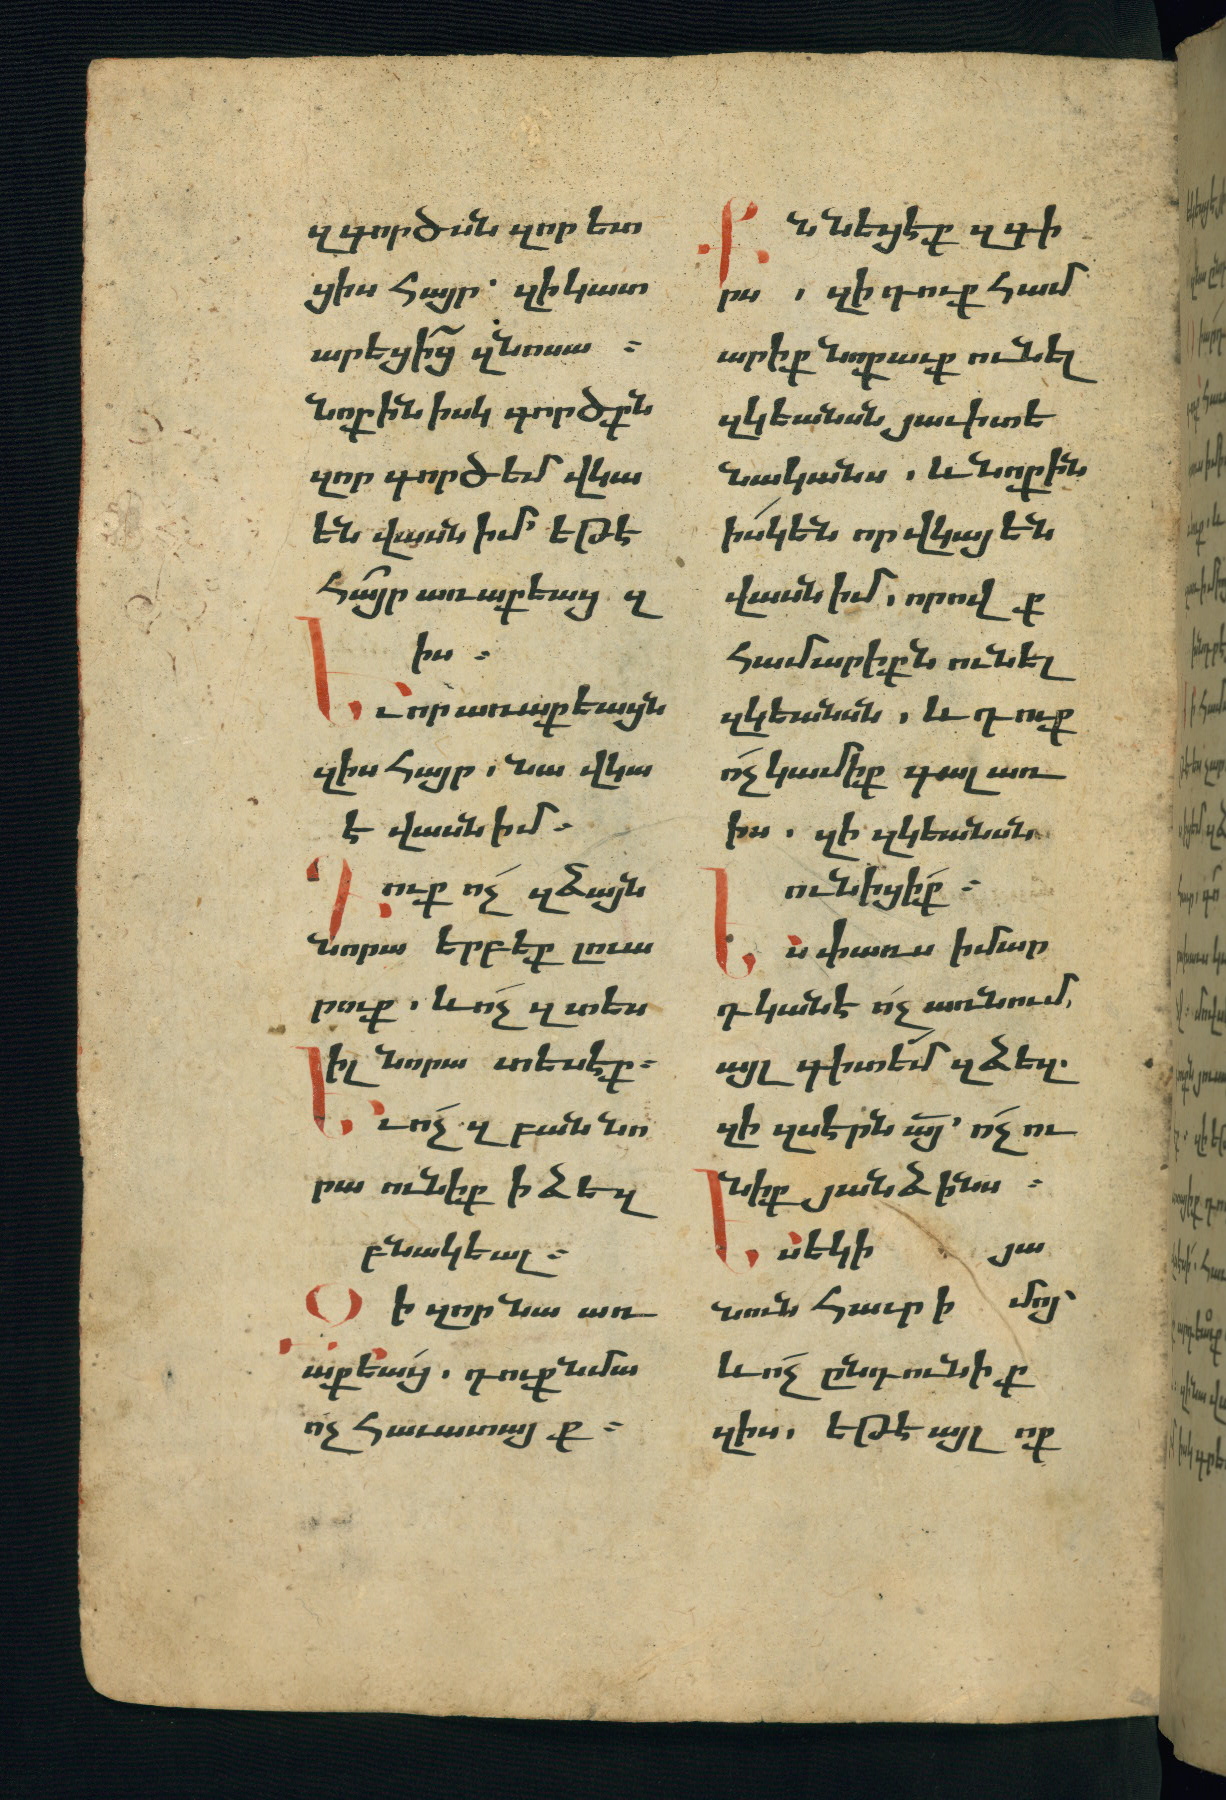 զգործսն զոր ետ
ցիս հայր՝ զի կատ
արեցի՛ց զնոսա ։
նոքին իսկ գործքն
զոր գործեմ վկա
են վասն իմ՝ եթէ
հայր առաքեաց զ
իս ։
Եւ որ առաքեացն
զիս հայր, նա վկա
է վասն իմ ։
Դուք ո՛չ զձայն
նորա երբէք լուա
րուք, և ո՛չ զտես
իլ նորա տեսէք ։
Եւ ո՛չ զբան նո
րա ունիք ի ձեզ
բնակեալ ։
Զի զոր նա առ
աքեաց, դուք նմա
ոչ հաւատայք ։
Քննեցէք զգի
րս , զի դուք համ
արիք նոքաւք ունել
զկեանսն յաւիտե
նականս , և նոքին
իսկեն որ վկայեն
վասն իմ, որով ք
համարիքն ունել
զկեանսն , և դուք
ո՛չ կամիք գալ առ
իս , զի զկեանսն
ունիցիք ։
Ես փառս ի մար
դկանէ ո՛չ առնում,
այլ գիտեմ զձեզ.
զի զսէրն ա՟յ՝ ո՛չ ու
նիք յանձինս ։
Ես եկի յա
նուն հաւր ի մոյ՝
և ո՛չ ընդունիք
զիս, եթէ այլ ոք